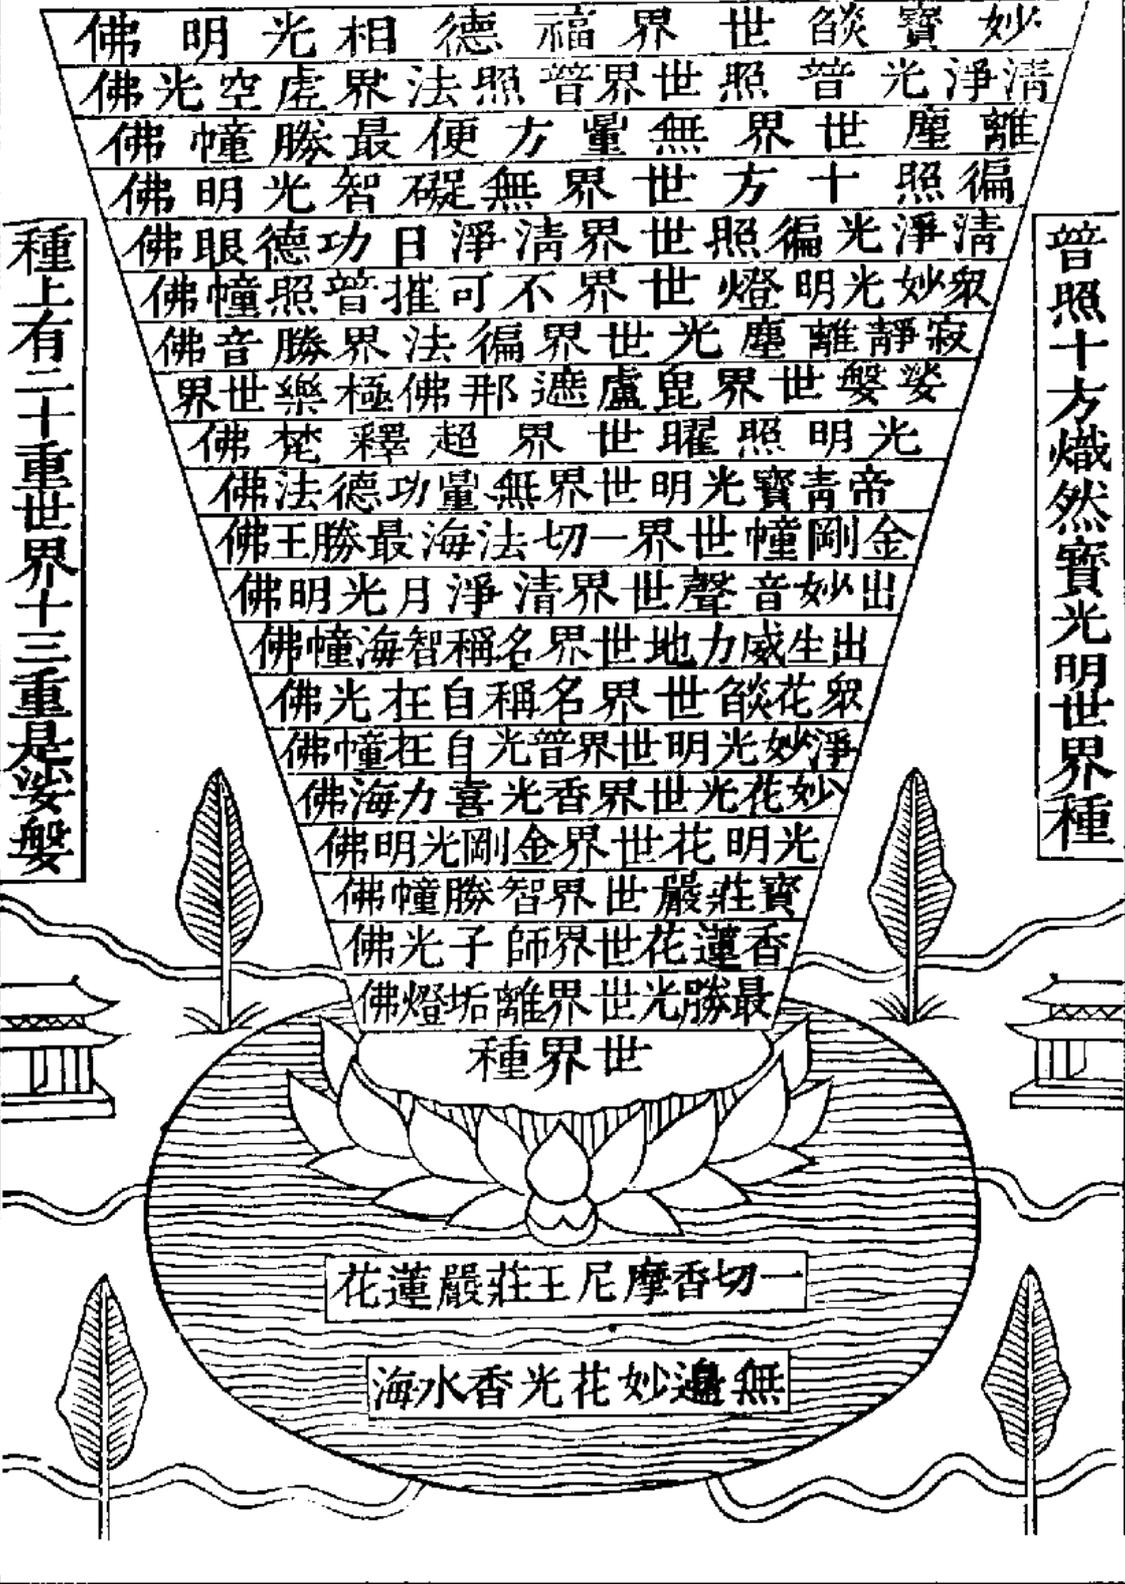 普照十方熾然寶光明世界種
妙寶燄世界福德相光明佛
清淨光普照世界普照法界虛空光佛
離塵世界無量方便最勝幢佛
徧照十方世界無礙智光明佛
清淨光徧照世界清淨日功德眼佛
眾妙光明燈世界不可摧普照幢佛
寂靜離塵光世界徧法界勝音佛
娑婆世界毘盧遮那佛極樂世界
光明照曜世界超釋梵佛
帝青寶光明世界無量功德法佛
金剛幢世界一切法海最勝王佛
出妙音聲世界清淨月光明佛
出生威力地世界名稱智海幢佛
眾花燄世界名稱自在光佛
淨妙光明世界普光自在幢佛
妙花光世界香光喜力海佛
光明花世界金剛光明佛
寶莊嚴世界智勝幢佛
香蓮花世界師子光佛
最勝光世界離垢燈佛
世界種
一切香摩尼王莊嚴蓮花
無邊妙花光香水海
種上有二十重世界十三重是娑婆